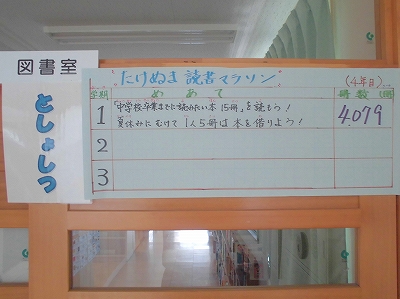 図書室
としょしつ
たけぬま 読書マラソン
(4年目)
学期 めあて 冊数
1 「中学校卒業までに読みたい本 15冊」を読もう!
夏休みにむけて 1人5冊は 本を借りよう!
4079
2
3